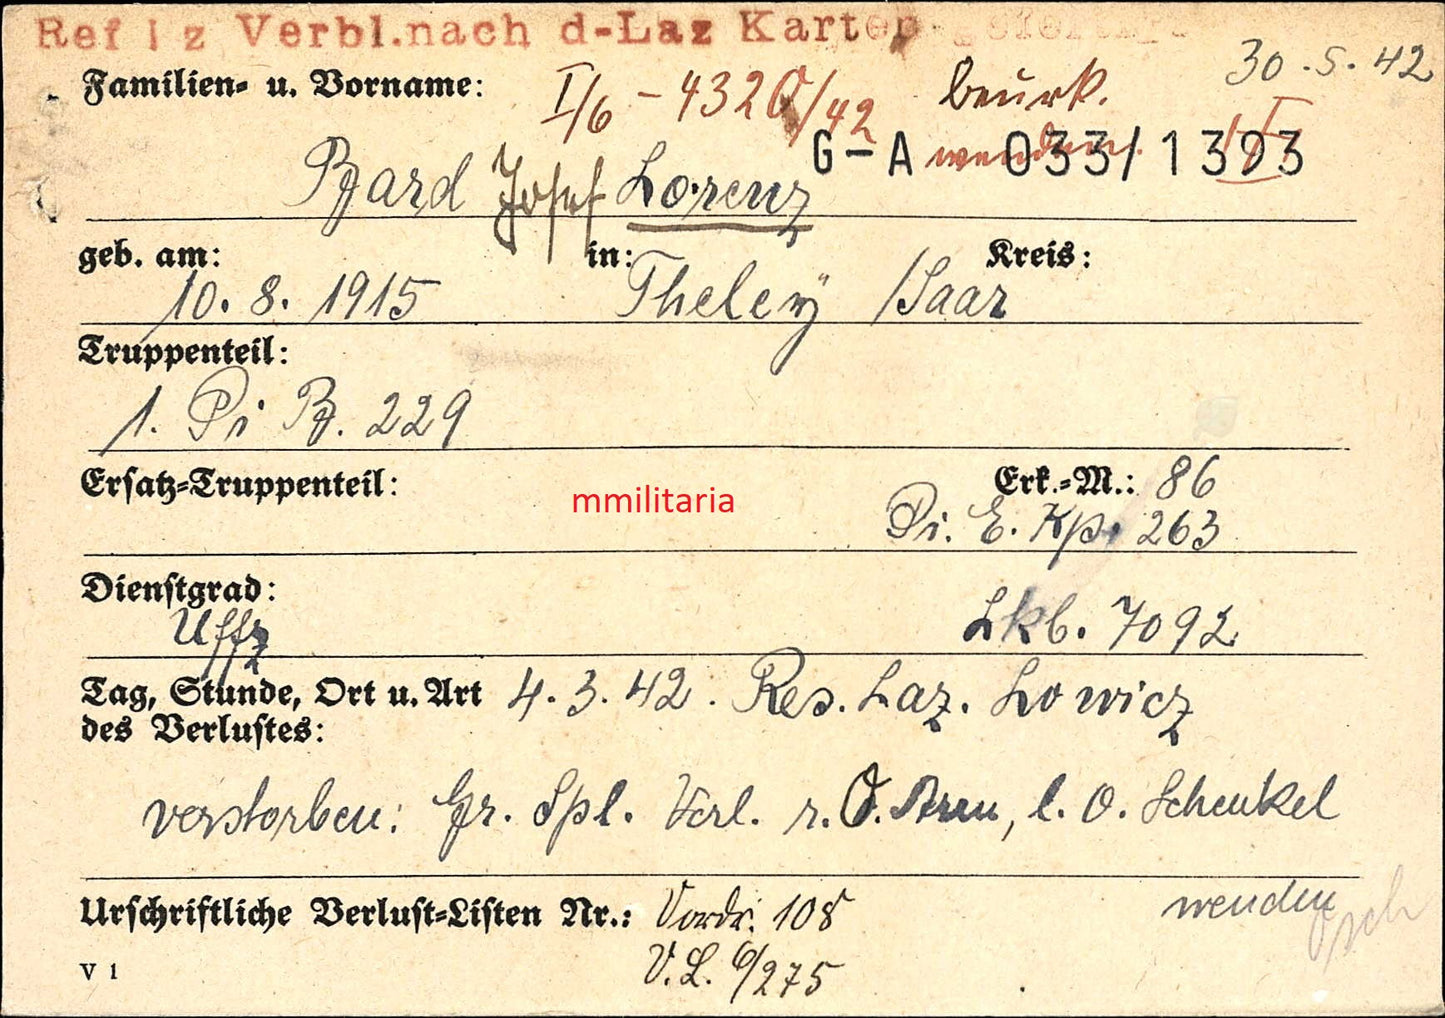 Ref I z Verbl.nach d-Laz Karten
30.5.42
Familien- u. Vorname: I/6 - 4320/42 beurk.
G-A 033/1393
Bard Josef Lorenz
geb. am: in: Kreis:
10.8.1915 Theley /Saar
Truppenteil:
1. Pi B. 229
Ersatz-Truppenteil: Erk.-M.: 86
mmilitaria
Pi. E. Kp. 263
Dienstgrad:
Uffz Lkb. 7092
Tag, Stunde, Ort u. Art 4.3.42. Res. Laz. Lowicz
des Verlustes:
verstorben: Gr. Spl. Verl. r. O. Arm, l. O. Schenkel
Urschriftliche Verlust-Listen Nr.: Vordr. 108 wenden
V.L. 6/275
V 1